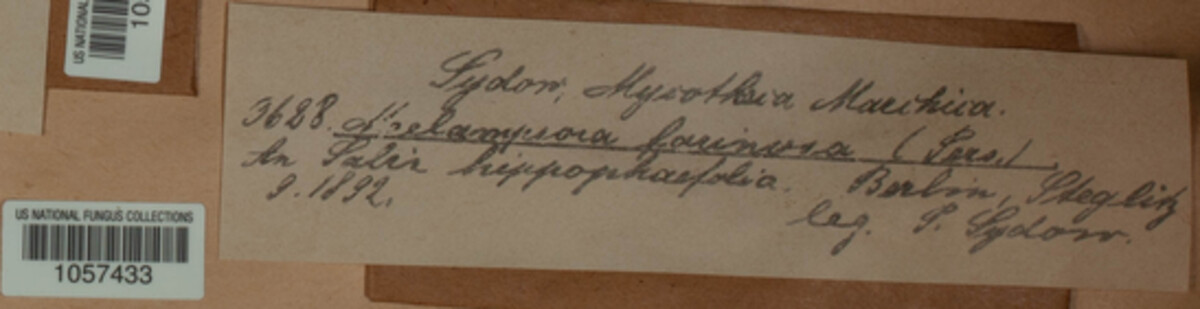 Sydow, Mycotheca Marchica.
3628. Melampsora farinosa (Pers.)
An Salix hippophaefolia. Berlin, Steglitz
9.1892.
leg. P. Sydow.
US NATIONAL FUNGUS COLLECTIONS
1057433
US NATIONAL
10